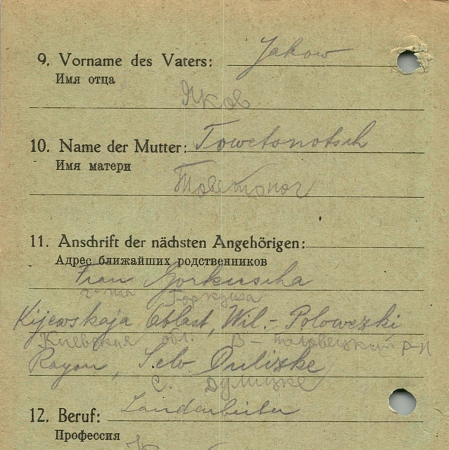 9. Vorname des Vaters: Jakow
Имя отца
Яков
10. Name der Mutter: Towetonotsch
Имя матери
Товетоног
11. Anschrift der nächsten Angehörigen:
Адрес ближайших родственников
Frau Gorkuscha
г-жа Горкуша
Kijewskaja Oblast, Wil.-Polowezki
Киевская обл. В-Половецкий р-н
Rayon, Selo Dulizke
С. Дулицке
12. Beruf: Landarbeiter
Профессия